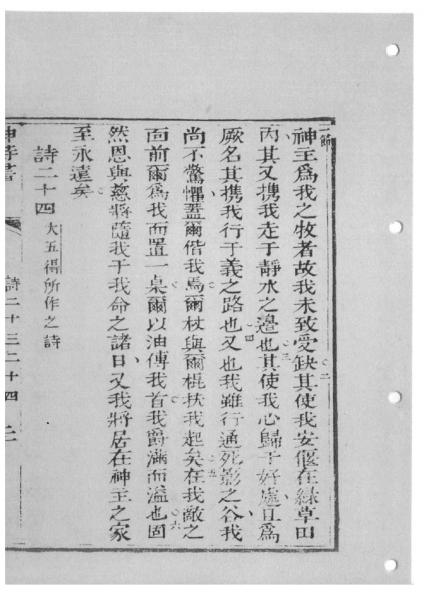 一節
神主爲我之牧者故我未致受缺其使我安偃在綠草田
丙其又携我走于靜水之邊也其使我心歸于好處且爲
厥名其携我行于義之路也又也我雖行通死影之谷我
尚不驚懼蓋爾偕我焉爾杖與爾棍扶我起矣在我敵之
面前爾爲我而置一桌爾以油傅我首我爵滿而溢也固
然恩與慈將隨我于我命之諸日又我將居在神主之家
至永遠矣
詩二十四 大五得所作之詩
神詩書 詩二十三二十四 二